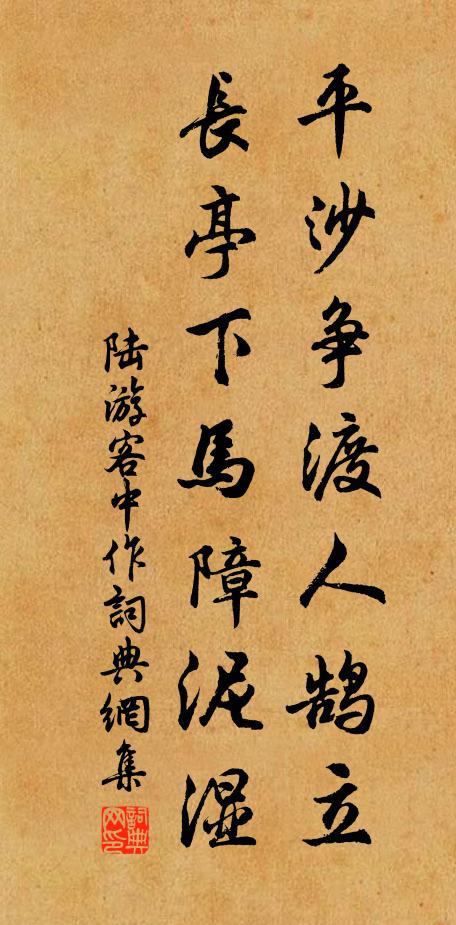 平沙争渡人鹄立
長亭下馬障泥湿
陆游客中作詞典網集
詞典网印